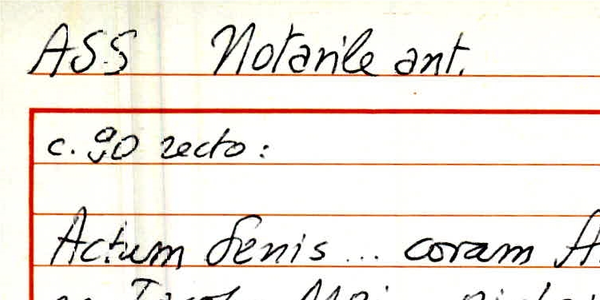 ASS Notarile ant.
c. 90 recto:
Actum Senis ... coram A